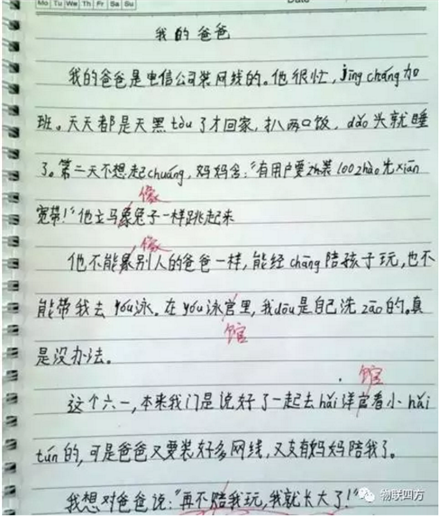 Mo Tu We Th Fr Sa Su
我的爸爸
我的爸爸是电信公司装网线的。他很忙，jīng cháng加
班。天天都是天黑tòu了才回家，扒两口饭，dǎo头就睡
了。第二天不想起chuáng，妈妈念："有用户要zhǎ装100zhào光xiān
像
宽带！"他立马象兔子一样跳起来
像
他不能象别人的爸爸一样，能经cháng陪孩子玩，也不
能带我去yóu泳。在yóu泳官里，我dōu是自己洗zǎo的。真
馆
是没办法。
馆
这个六一，本来我门是说好了一起去hǎi洋官看小hǎi
tún的，可是爸爸又要装好多网线，又支有妈妈陪我了。
我想对爸爸说："再不陪我玩，我就长大了！"
物联四方